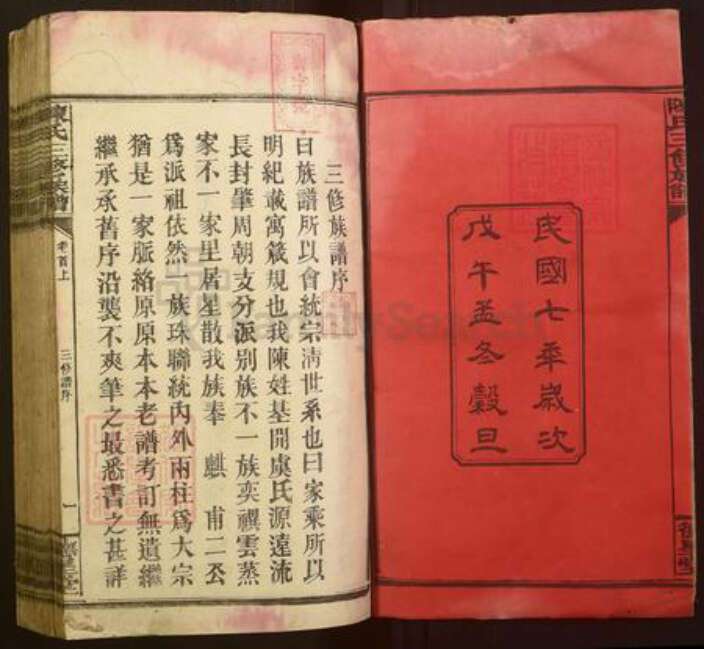 民國七年歲次
戊午孟冬穀旦
三修族譜序
曰族譜所以會統宗淸世系也曰家乘所以
明紀載寓箴規也我陳姓基開虞氏源遠流
長封肇周朝支分派别族不一族奕禩雲蒸
家不一家星居星散我族奉 麒 甫二公
爲派祖依然一族珠聯統內外兩柱爲大宗
猶是一家脈絡原原本本老譜考訂無遺繼
繼承承舊序沿襲不爽筆之最悉書之甚詳
陳氏三修族譜
卷首上
三修譜序
一
FamilySearch